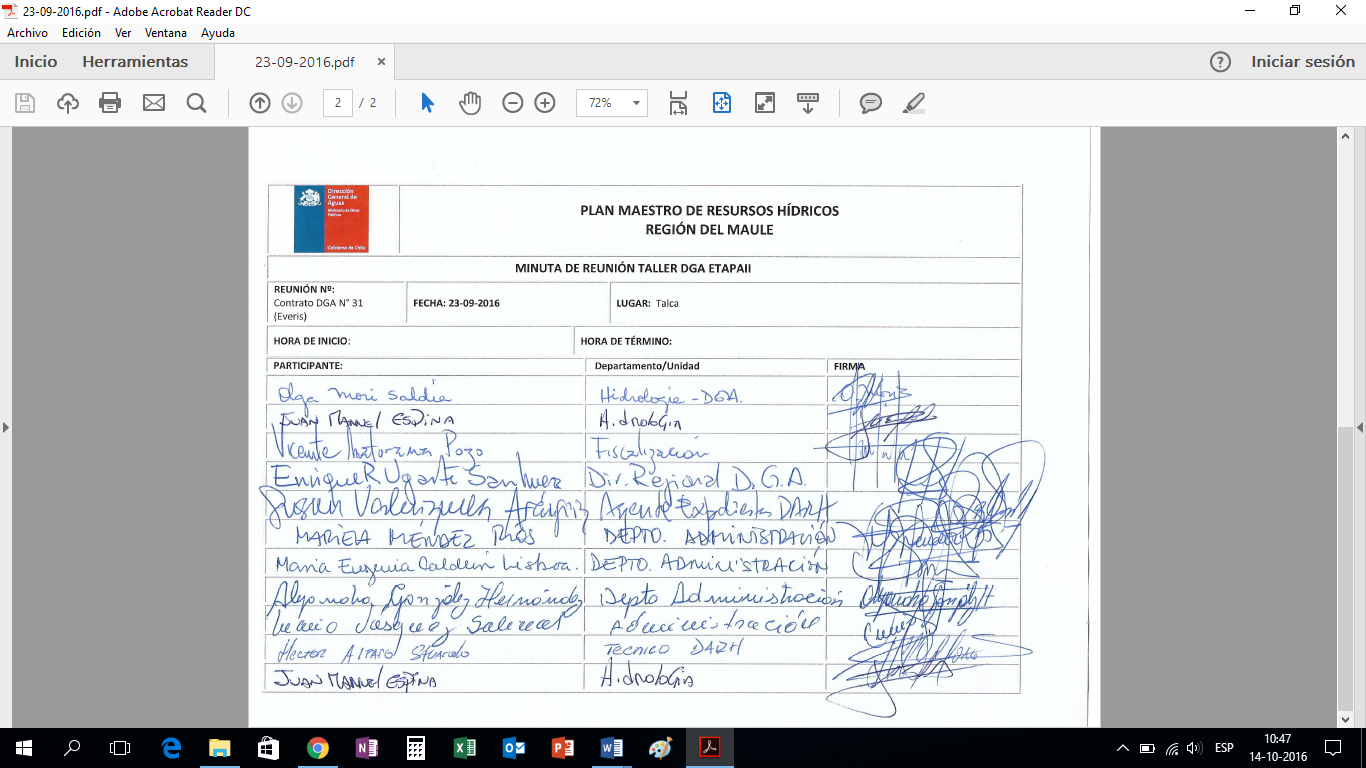 23-09-2016.pdf - Adobe Acrobat Reader DC
Archivo Edición Ver Ventana Ayuda
Inicio Herramientas 23-09-2016.pdf × Iniciar sesión
2 / 2 72%
Dirección General de Aguas
Ministerio de Obras Públicas
Gobierno de Chile
PLAN MAESTRO DE RESURSOS HÍDRICOS
REGIÓN DEL MAULE
MINUTA DE REUNIÓN TALLER DGA ETAPAII
REUNIÓN Nº:
Contrato DGA N° 31
(Everis)
FECHA: 23-09-2016
LUGAR: Talca
HORA DE INICIO: HORA DE TÉRMINO:
PARTICIPANTE: Departamento/Unidad FIRMA
Olga Mori Saldía Hidrologia - DGA.
JUAN MANUEL ESPINA Hidrologia
Vicente Maturana Pozo Fiscalización
Enrique R Ugarte Dir. Regional D.G.A.
Valenzuela Expedientes DARH
MARIELA MÉNDEZ RÍOS DEPTO. ADMINISTRACIÓN
María Eugenia Calderón Lisboa. DEPTO. ADMINISTRACIÓN
Alejandra González Hernández Depto Administración
Vasquez Administración
HECTOR ALFARO TECNICO DARH
JUAN MANUEL ESPINA Hidrologia
ESP
10:47
14-10-2016